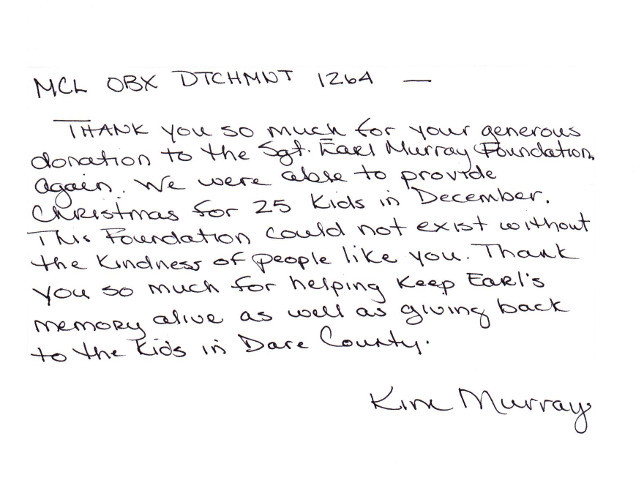 MCL OBX DTCHMNT 1264 —
THANK you so much for your generous
donation to the Sgt. Earl Murray Foundation,
again. We were able to provide
Christmas for 25 Kids in December.
This Foundation could not exist without
the kindness of people like you. Thank
you so much for helping keep Earl's
memory alive as well as giving back
to the kids in Dare County.
Kim Murray